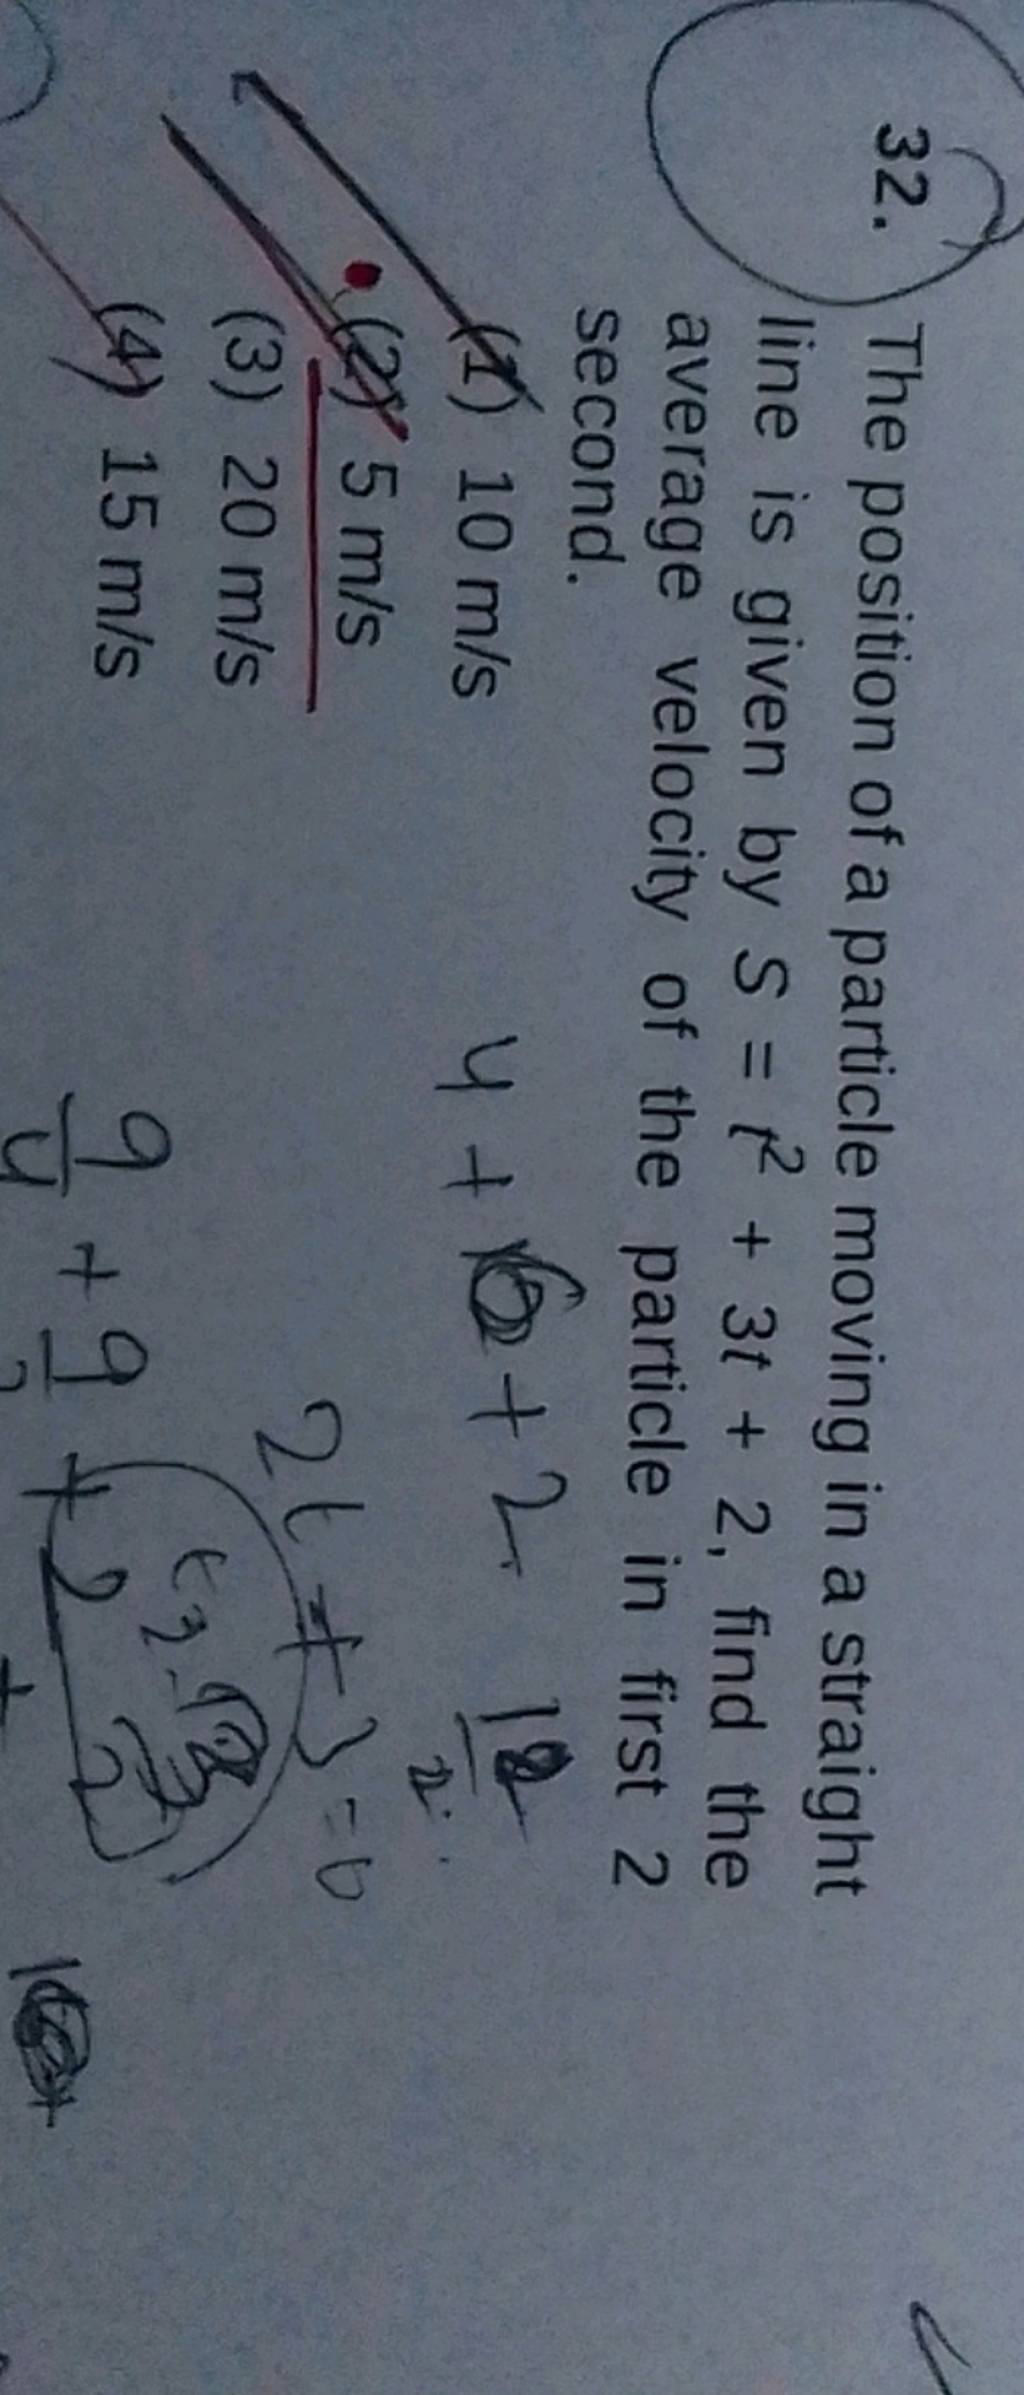 32. The position of a particle moving in a straight
line is given by S = t² + 3t + 2, find the
average velocity of the particle in first 2
second.
(1) 10 m/s
(2) 5 m/s
(3) 20 m/s
(4) 15 m/s
4 + 6 + 2
2t + 3 = 0
9/4 + 9/2 + 2